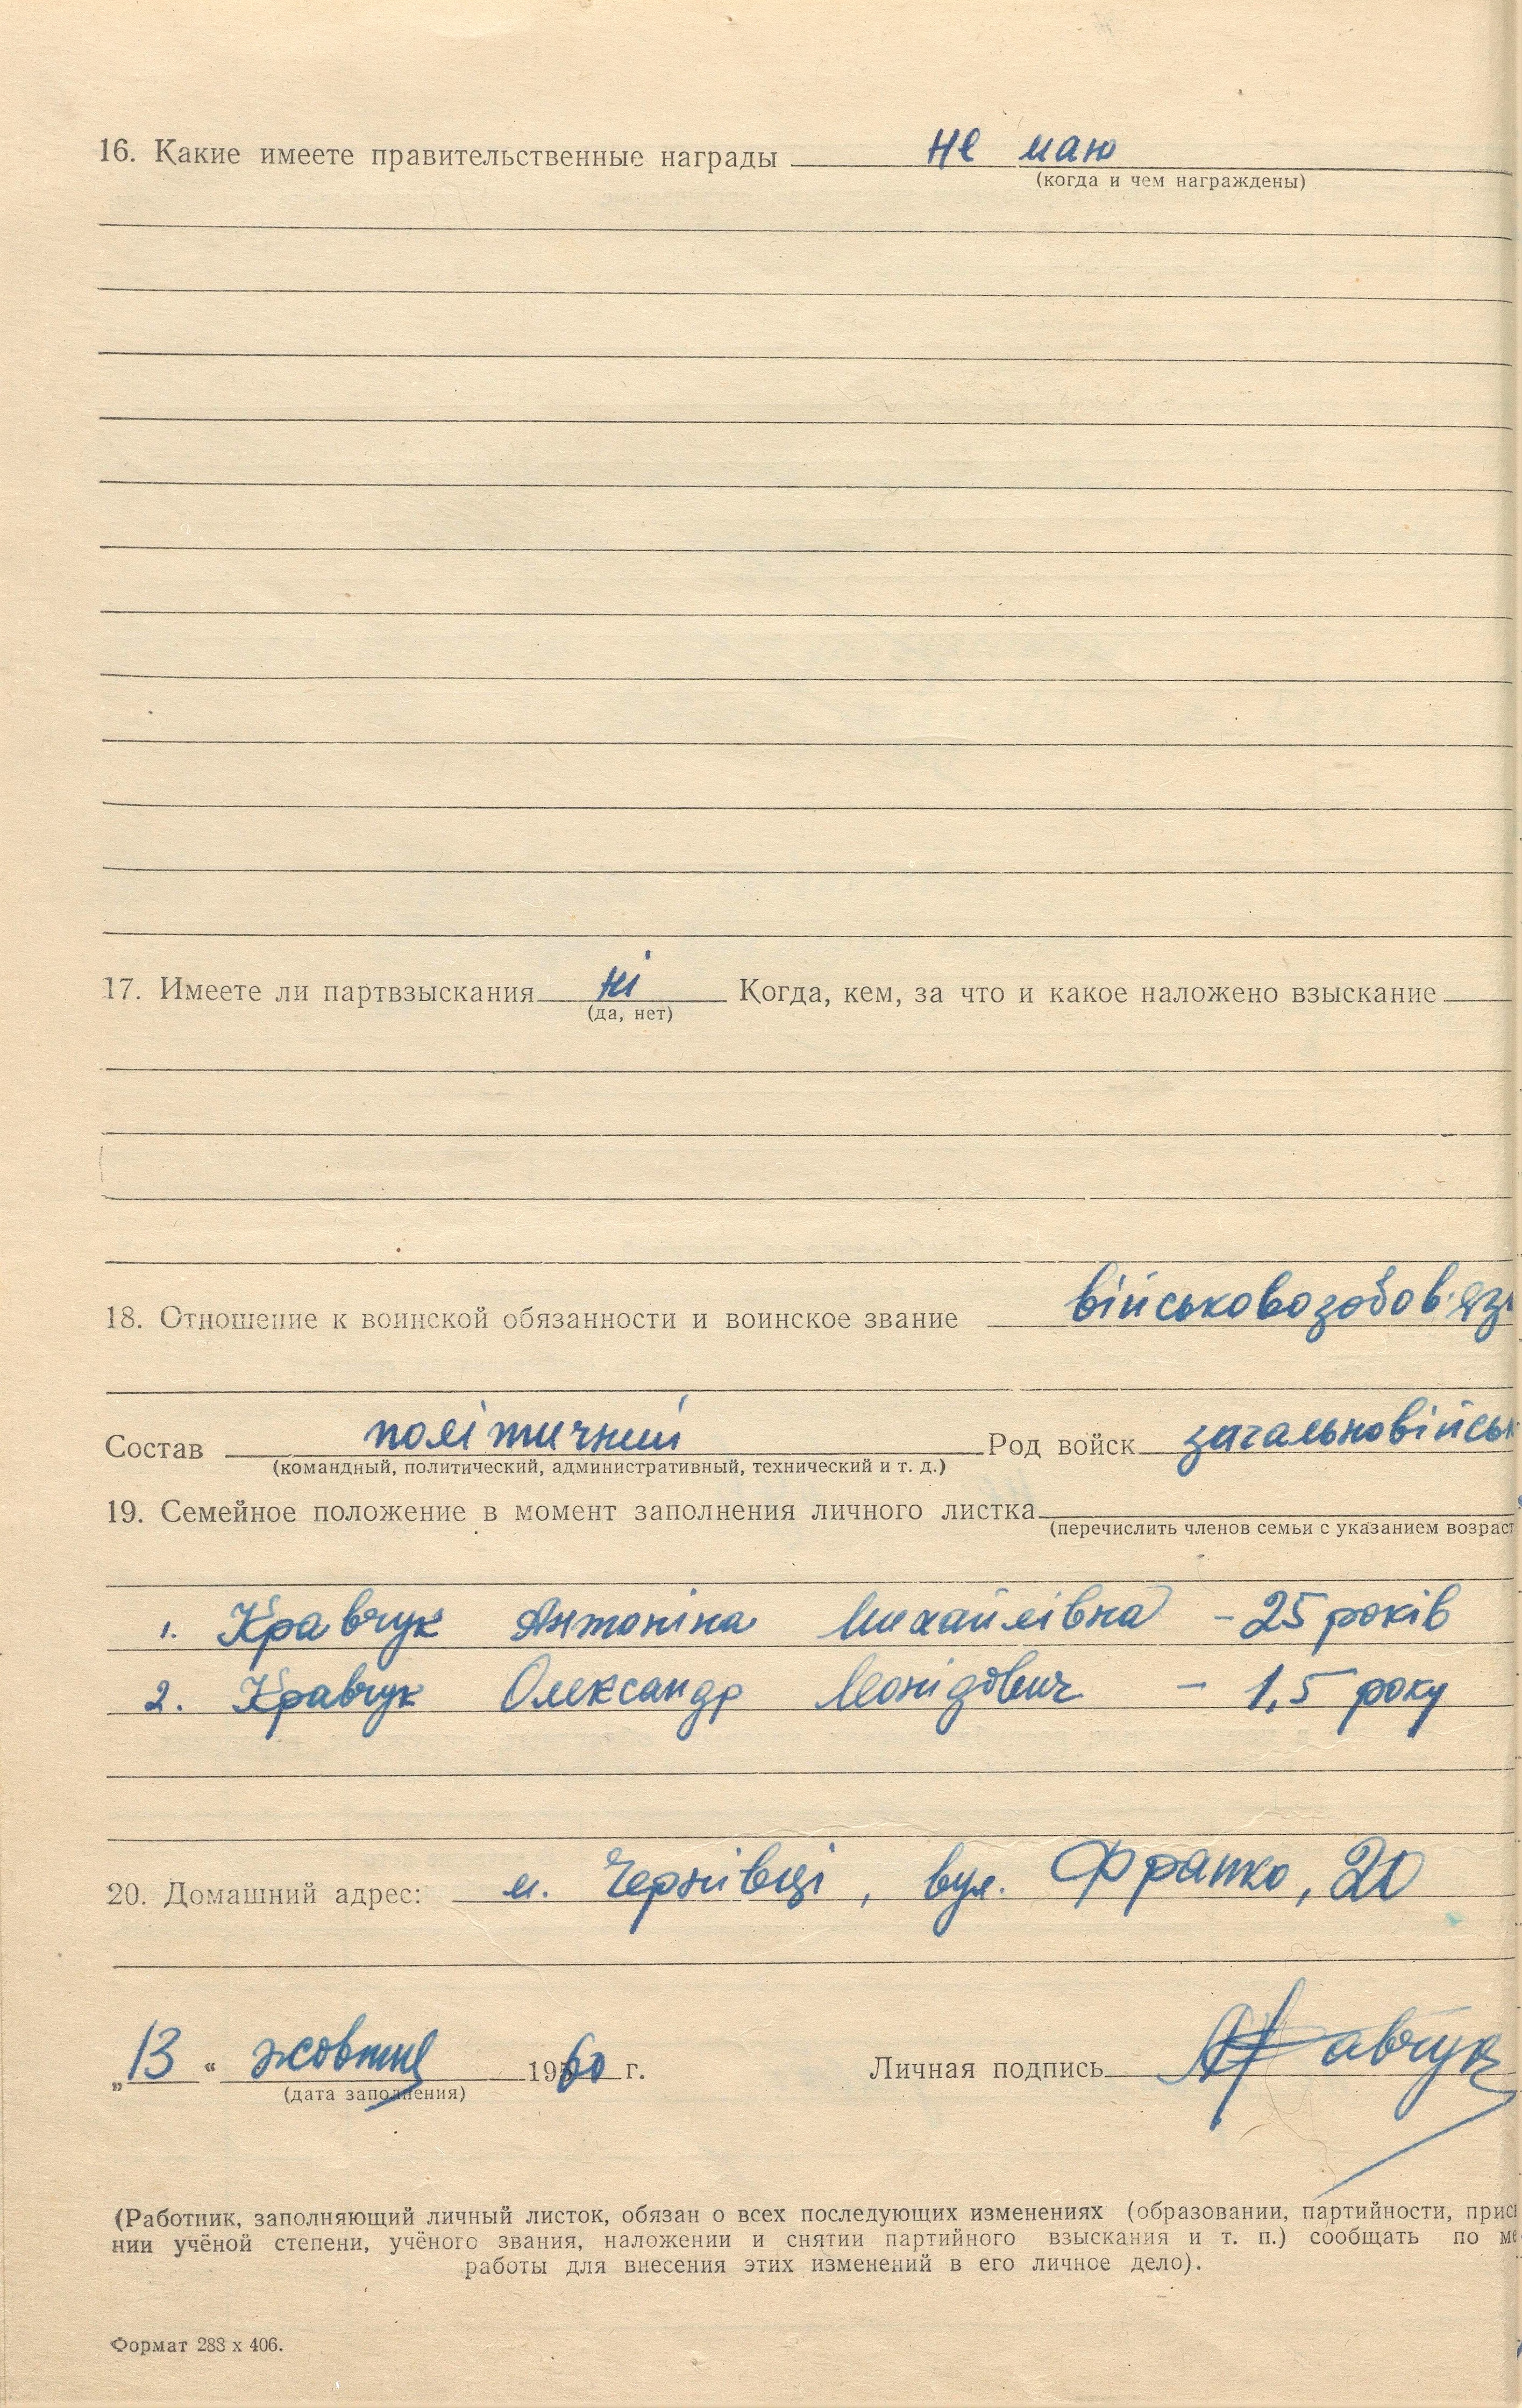 16. Какие имеете правительственные награды не маю
(когда и чем награждены)
17. Имеете ли партвзыскания ні Когда, кем, за что и какое наложено взыскание
(да, нет)
18. Отношение к воинской обязанности и воинское звание військовозобов'яз
Состав політичний Род войск загальновійськ
(командный, политический, административный, технический и т. д.)
19. Семейное положение в момент заполнения личного листка
(перечислить членов семьи с указанием возраст
1. Кравчук Антоніна Михайлівна – 25 років
2. Кравчук Олександр Леонідович – 1,5 року
20. Домашний адрес: м. Чернівці, вул. Франко, 20
„13 “ жовтня 1960 г. Личная подпись Кравчук
(дата заполнения)
(Работник, заполняющий личный листок, обязан о всех последующих изменениях (образовании, партийности, присв
нии учёной степени, учёного звания, наложении и снятии партийного взыскания и т. п.) сообщать по ме
работы для внесения этих изменений в его личное дело).
Формат 288 х 406.